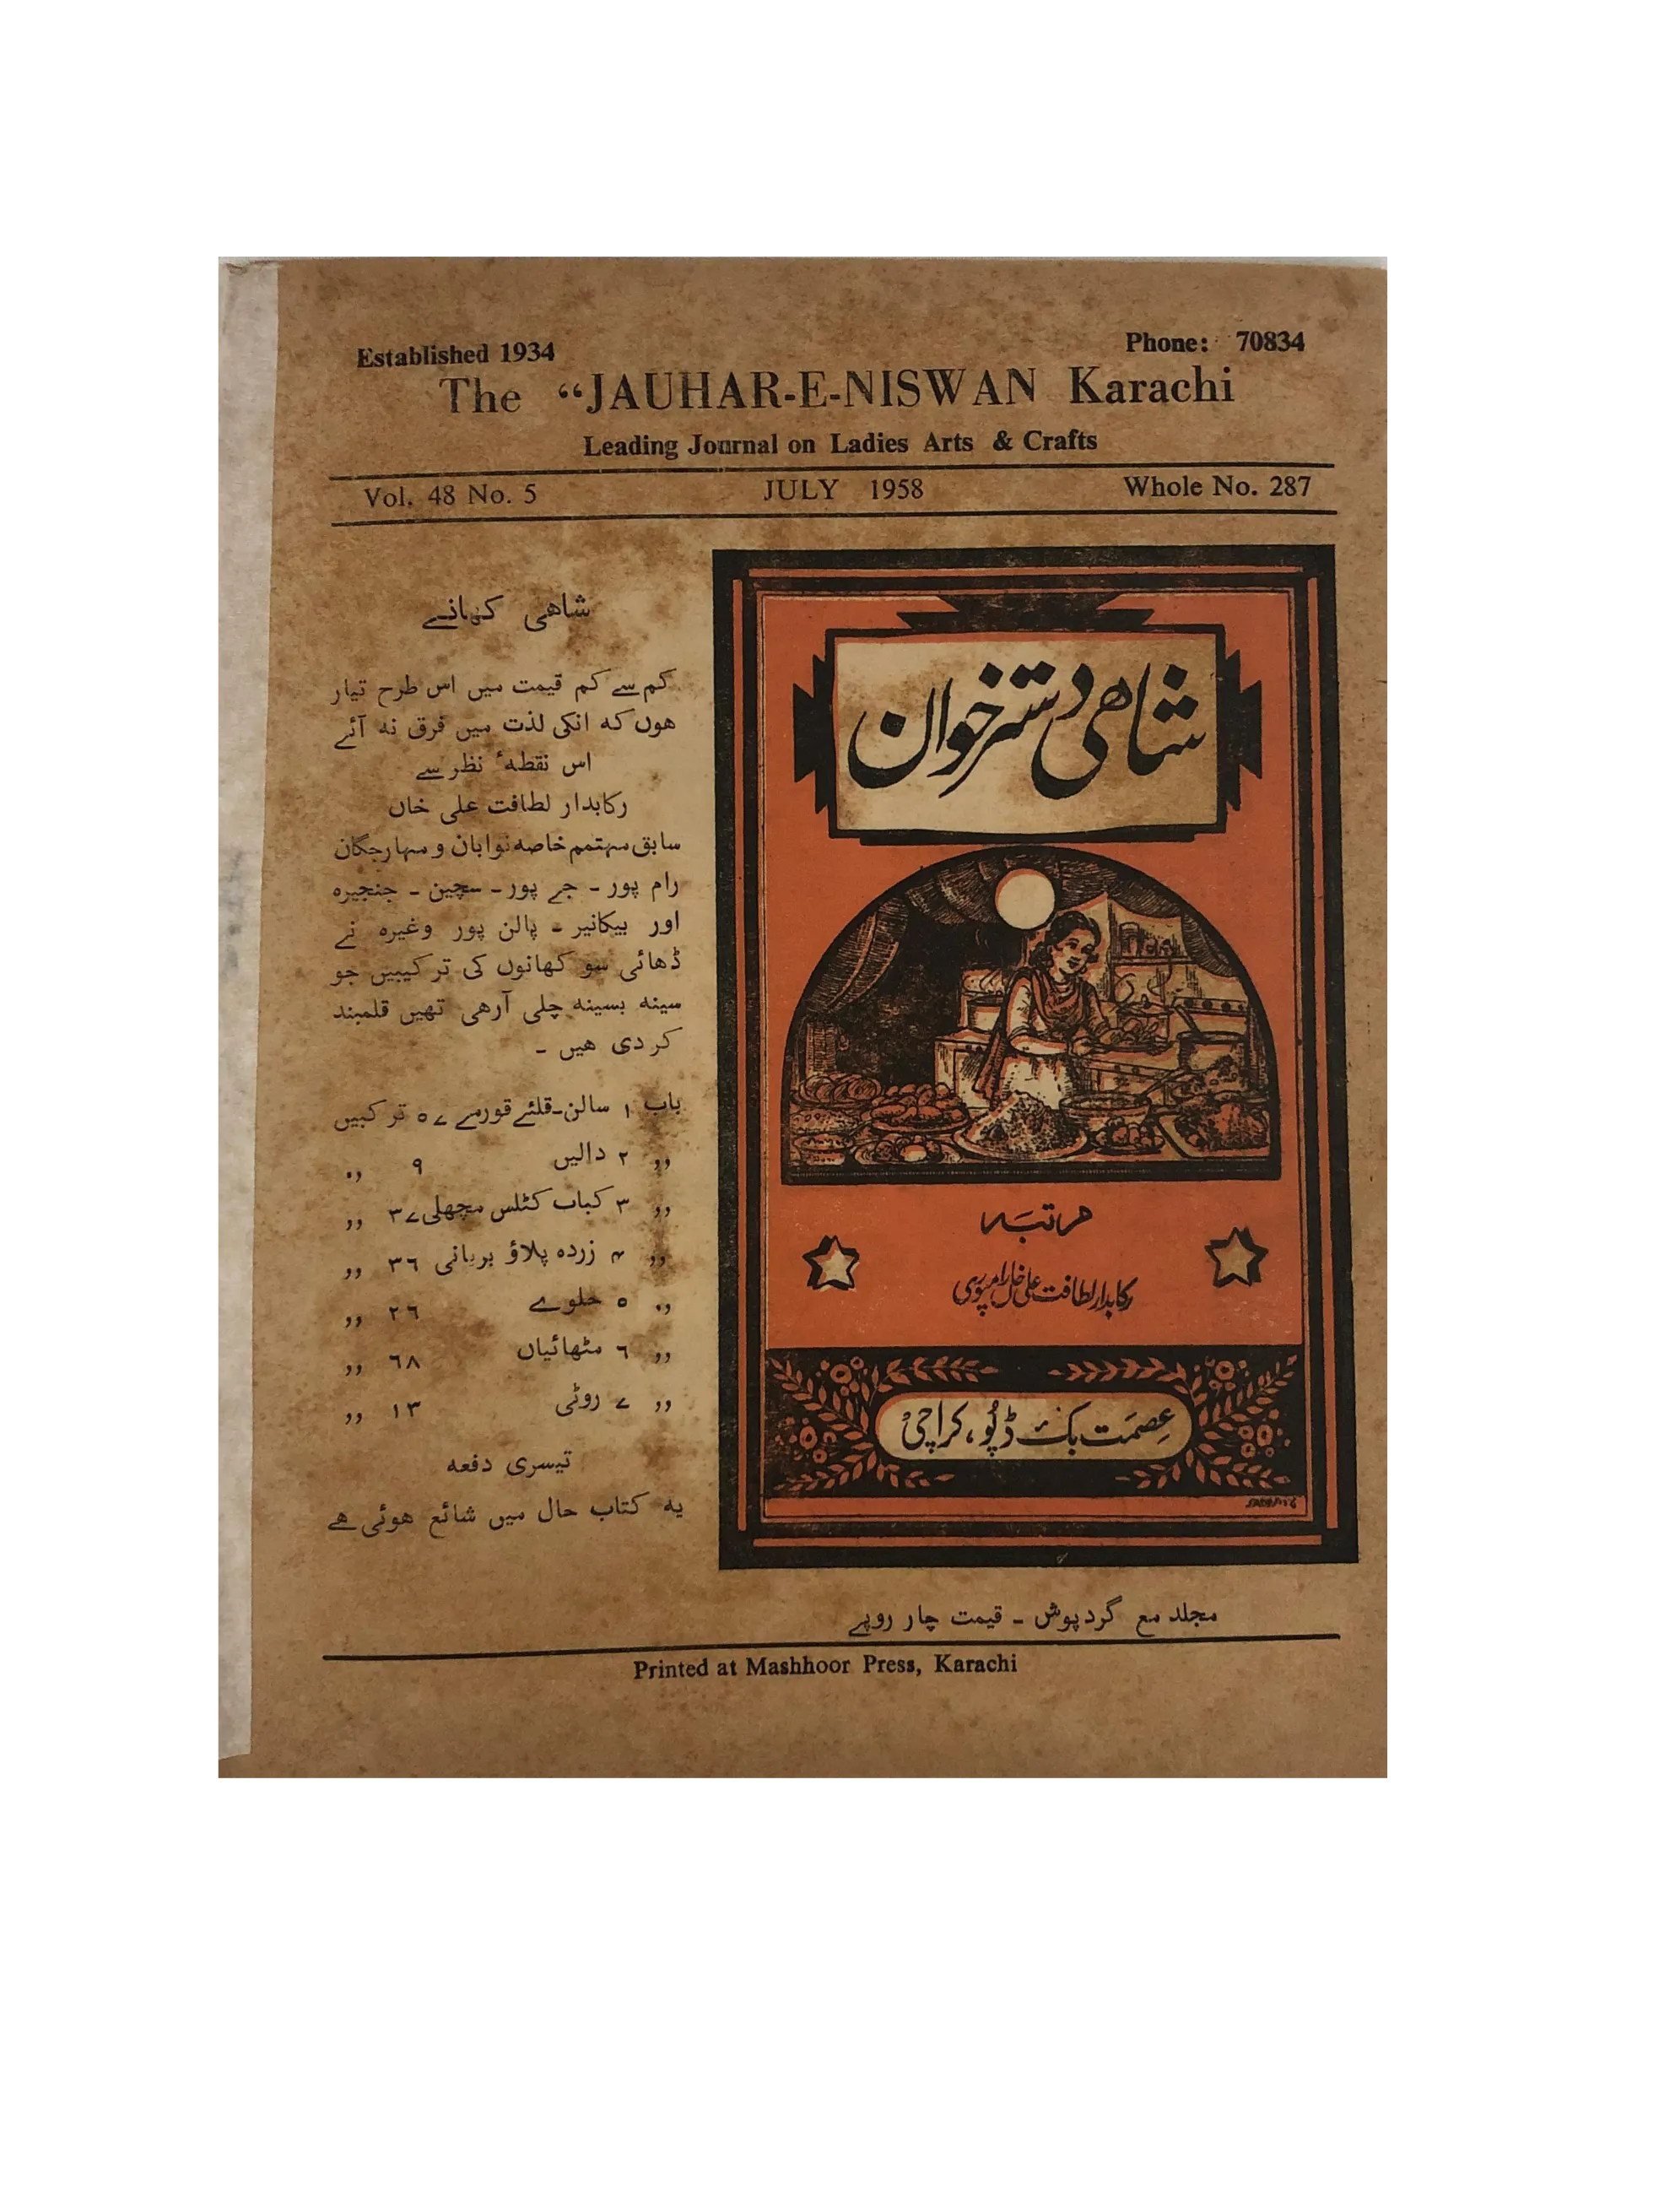 Established 1934
Phone: 70834
The “JAUHAR-E-NISWAN Karachi
Leading Journal on Ladies Arts & Crafts
Vol. 48 No. 5 JULY 1958 Whole No. 287
شاهی کھانے
کم سے کم قیمت میں اس طرح تیار
ھوں کہ انکی لذت میں فرق نہ آئے
اس نقطۂ نظر سے
رکابدار لطافت علی خاں
سابق مہتمم خاصہ نوابان و مہارجگان
رام پور ۔ جے پور ۔ سچین ۔ جنجیرہ
اور بیکانیر ۔ پالن پور وغیرہ نے
ڈھائی سو کھانوں کی ترکیبیں جو
سینہ بسینہ چلی آرھی تھیں قلمبند
کر دی ھیں ۔
باب ۱ سالن۔قلئے قورمے ۵۷ ترکبیں
,, ۲ دالیں ۹ ,,
,, ۳ کباب کٹلس مچھلی ۳۷ ,,
,, ۴ زردہ پلاؤ بریانی ۳۶ ,,
,, ۵ حلوے ۲۶ ,,
,, ۶ مٹھائیاں ۶۸ ,,
,, ۷ روٹی ۱۳ ,,
تیسری دفعہ
یہ کتاب حال میں شائع ھوئی ھے
شاھی دسترخوان
مرتبہ
رکابدار لطافت علی خاں رامپوری
عصمت بک ڈپو، کراچی
مجلد مع گردپوش ۔ قیمت چار روپے
Printed at Mashhoor Press, Karachi